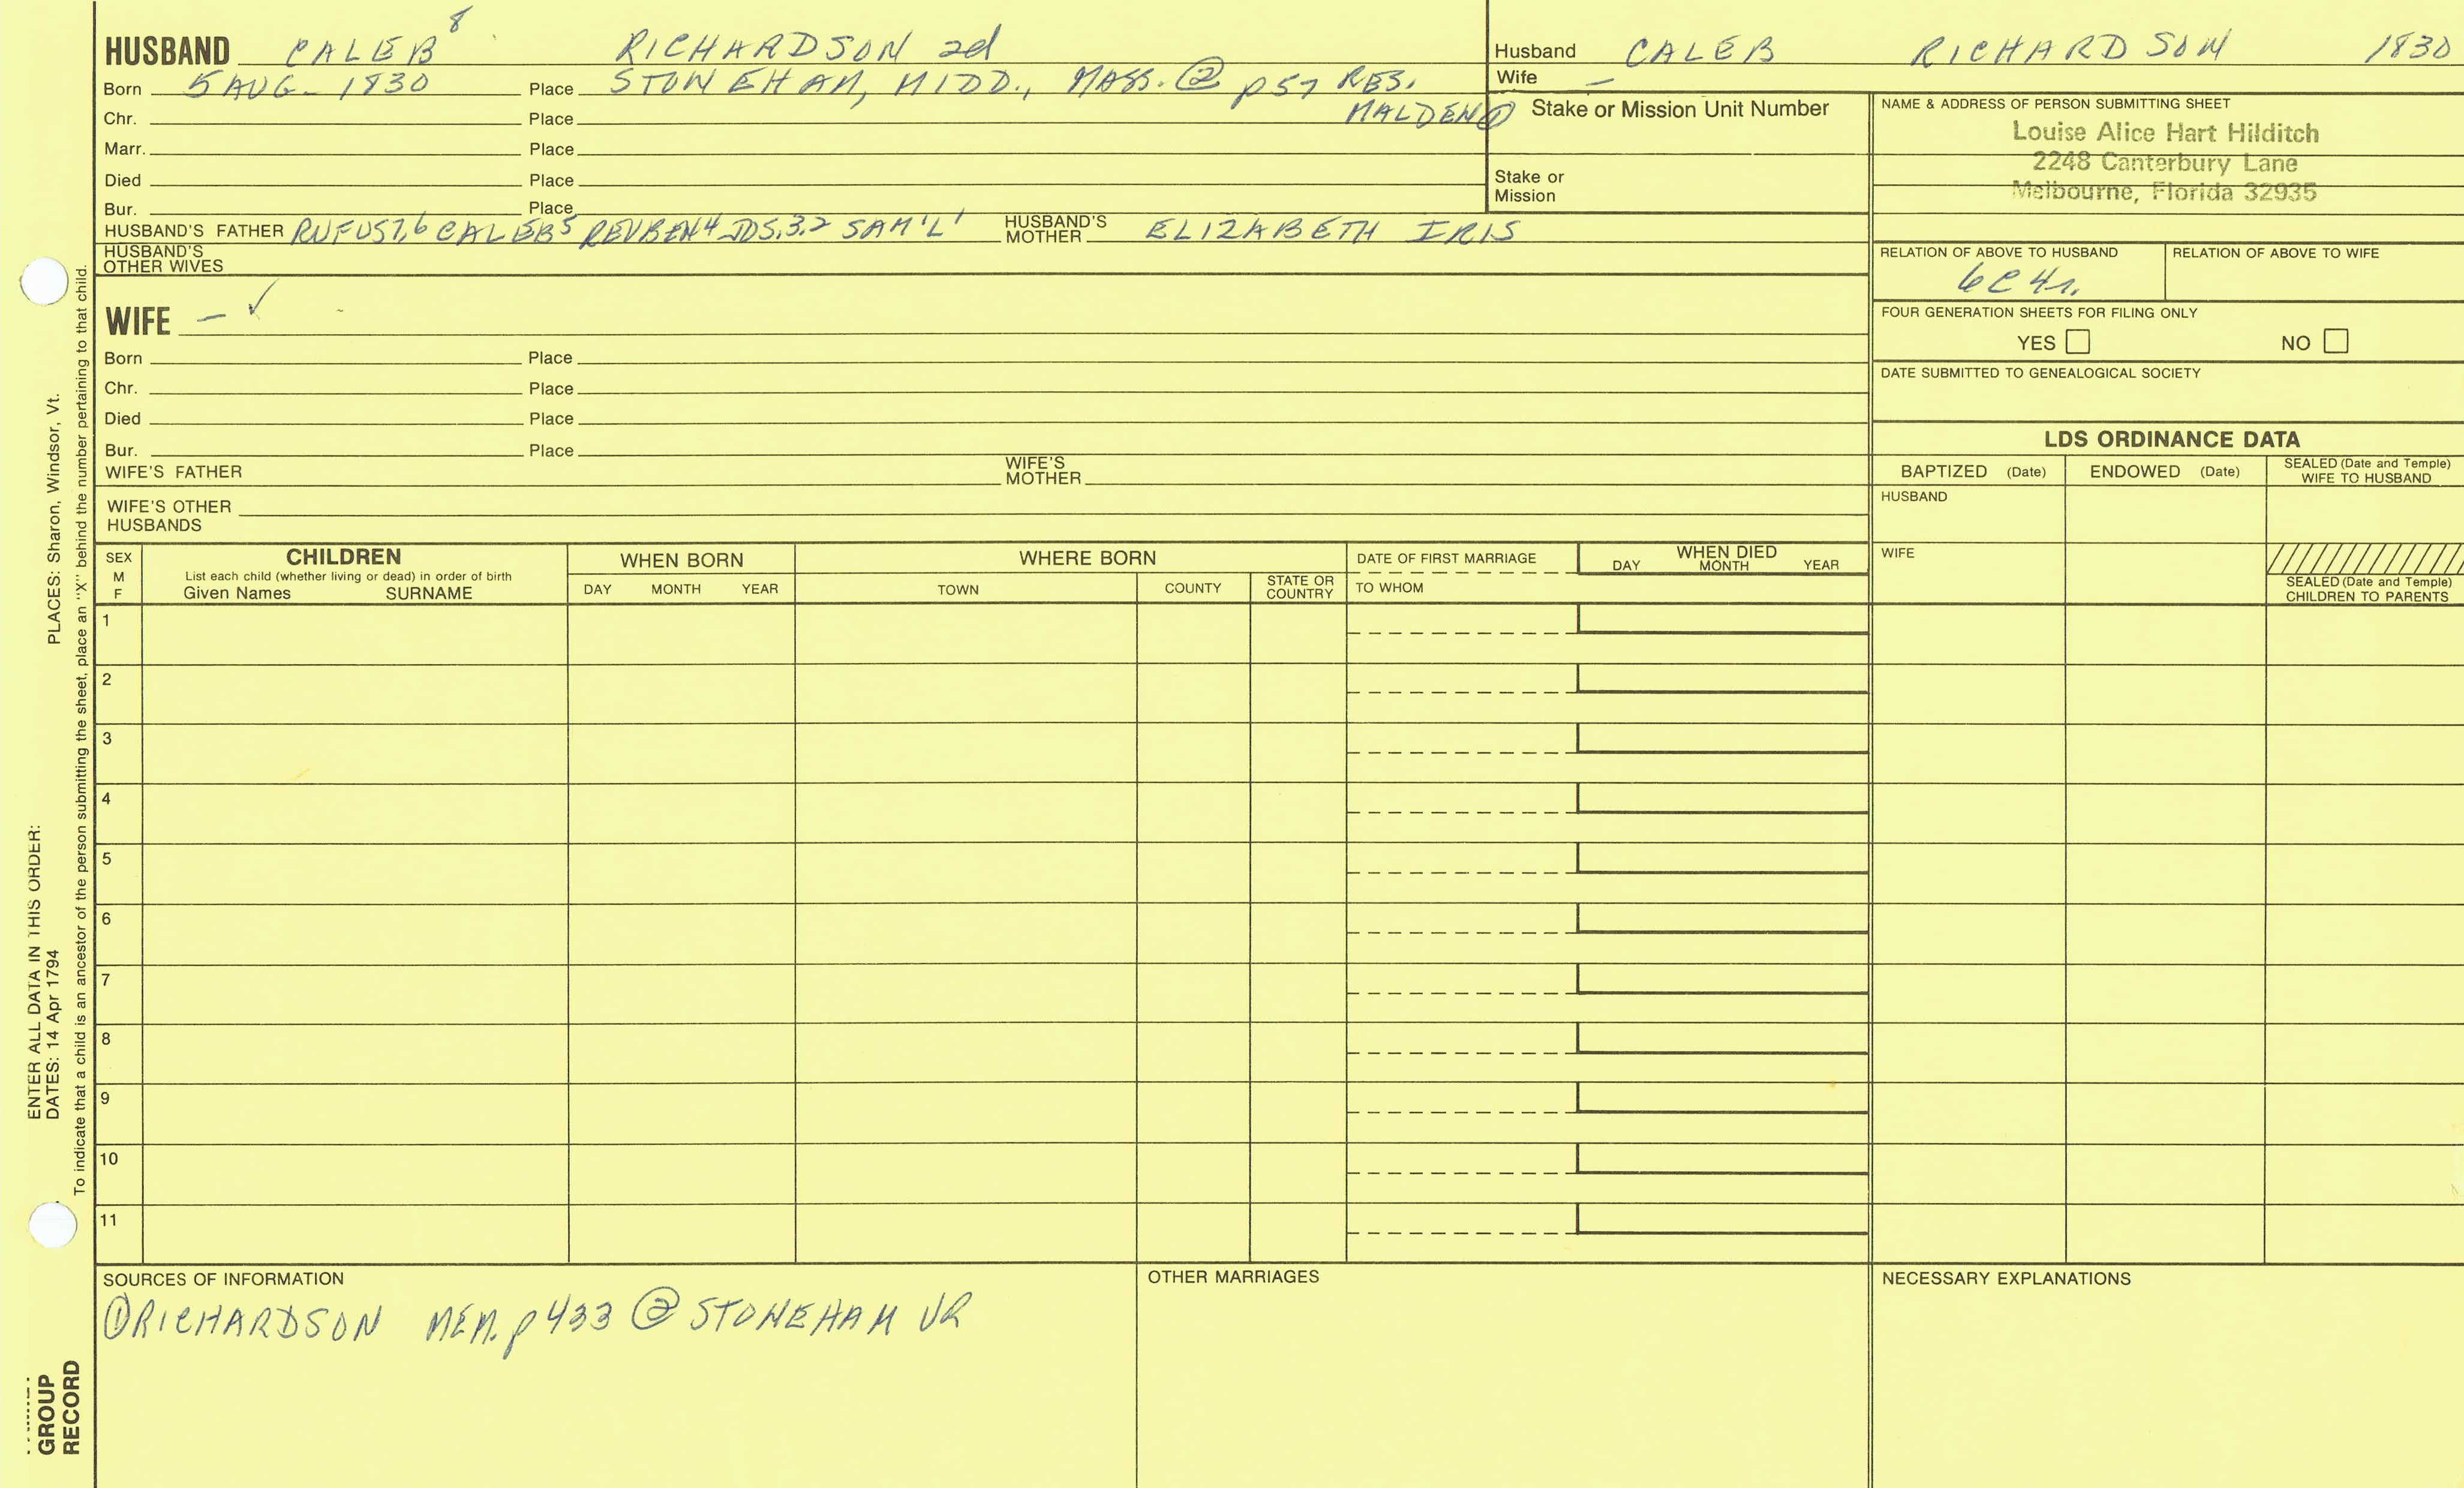 HUSBAND CALEB 8 RICHARDSON 2d
Born 5 AUG - 1830 Place STONEHAM, MIDD., MASS. ② p57 RES.
MALDEN ①
Chr. Place
Marr. Place
Died Place
Bur. Place
HUSBAND'S FATHER RUFUS 7,6 CALEB 5 REUBEN 4 JDS. 3,2 SAM'L 1 HUSBAND'S MOTHER ELIZABETH IRIS
HUSBAND'S OTHER WIVES
Husband CALEB RICHARDSON 1830
Wife –
Stake or Mission Unit Number
Stake or
Mission
NAME & ADDRESS OF PERSON SUBMITTING SHEET
Louise Alice Hart Hilditch
2248 Canterbury Lane
Melbourne, Florida 32935
RELATION OF ABOVE TO HUSBAND RELATION OF ABOVE TO WIFE
6C 4r.
FOUR GENERATION SHEETS FOR FILING ONLY
YES NO
DATE SUBMITTED TO GENEALOGICAL SOCIETY
WIFE – ✓
Born Place
Chr. Place
Died Place
Bur. Place
WIFE'S FATHER WIFE'S MOTHER
WIFE'S OTHER
HUSBANDS
LDS ORDINANCE DATA
BAPTIZED (Date) ENDOWED (Date) SEALED (Date and Temple)
WIFE TO HUSBAND
HUSBAND
WIFE
SEALED (Date and Temple)
CHILDREN TO PARENTS
SEX
M
F
CHILDREN
List each child (whether living or dead) in order of birth
Given Names SURNAME
WHEN BORN
DAY MONTH YEAR
WHERE BORN
TOWN COUNTY STATE OR COUNTRY
DATE OF FIRST MARRIAGE
TO WHOM
WHEN DIED
DAY MONTH YEAR
1
2
3
4
5
6
7
8
9
10
11
SOURCES OF INFORMATION
① RICHARDSON MEM. p433 ② STONEHAM VR
OTHER MARRIAGES
NECESSARY EXPLANATIONS
ENTER ALL DATA IN THIS ORDER:
DATES: 14 Apr 1794 PLACES: Sharon, Windsor, Vt.
To indicate that a child is an ancestor of the person submitting the sheet, place an "X" behind the number pertaining to that child.
GROUP
RECORD